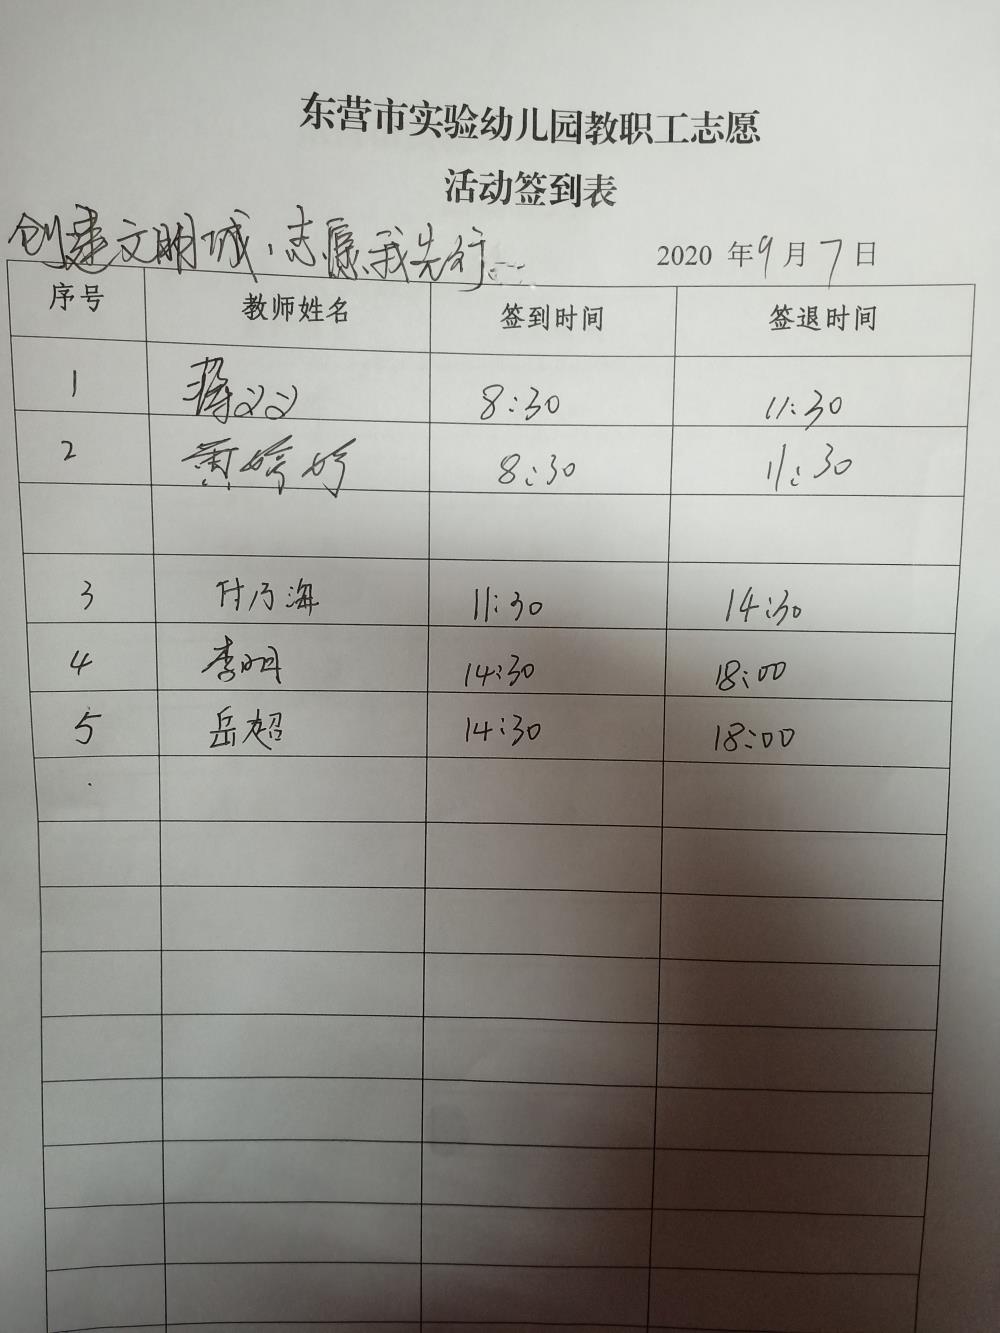 东营市实验幼儿园教职工志愿
活动签到表
创建文明城,志愿我先行
2020 年9月7日
序号 教师姓名 签到时间 签退时间
1 8:30 11:30
2 黄婷婷 8:30 11:30
3 付乃海 11:30 14:30
4 李明 14:30 18:00
5 岳超 14:30 18:00